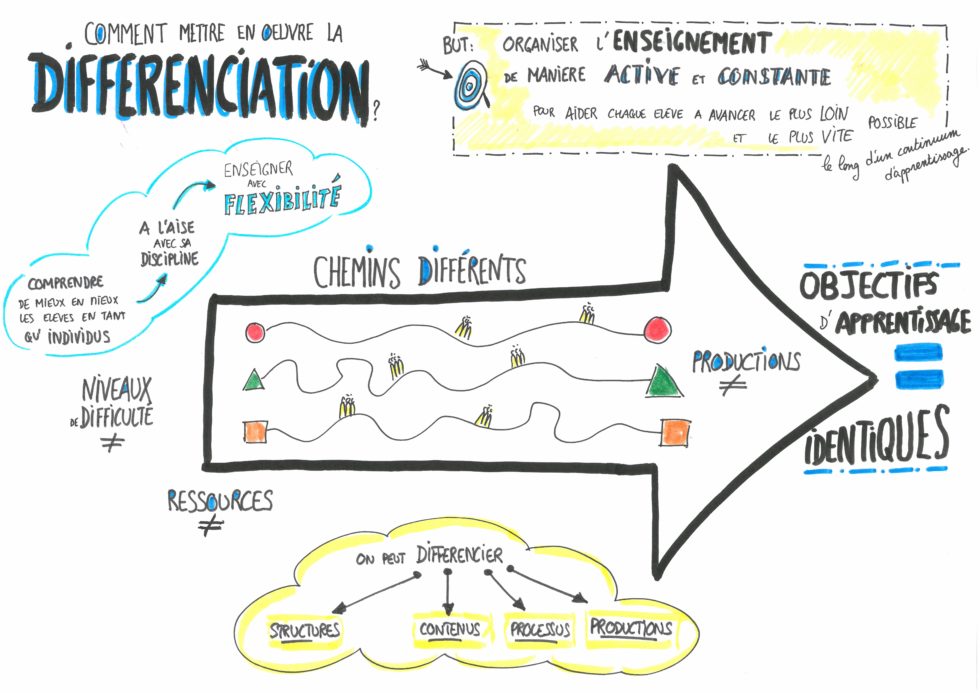 COMMENT METTRE EN OEUVRE LA
DIFFERENCIATION?
BUT: ORGANISER L'ENSEIGNEMENT
DE MANIERE ACTIVE ET CONSTANTE
POUR AIDER CHAQUE ELEVE A AVANCER LE PLUS LOIN
ET LE PLUS VITE POSSIBLE
le long d'un continuum
d'apprentissage.
ENSEIGNER
AVEC
FLEXIBILITÉ
A L'AISE
AVEC SA
DISCIPLINE
COMPRENDRE
DE MIEUX EN MIEUX
LES ELEVES EN TANT
QU'INDIVIDUS
CHEMINS DIFFÉRENTS
OBJECTIFS
D'APPRENTISSAGE
=
IDENTIQUES
PRODUCTIONS
≠
NIVEAUX
DE DIFFICULTÉ
≠
RESSOURCES
≠
ON PEUT DIFFERENCIER
STRUCTURES CONTENUS PROCESSUS PRODUCTIONS